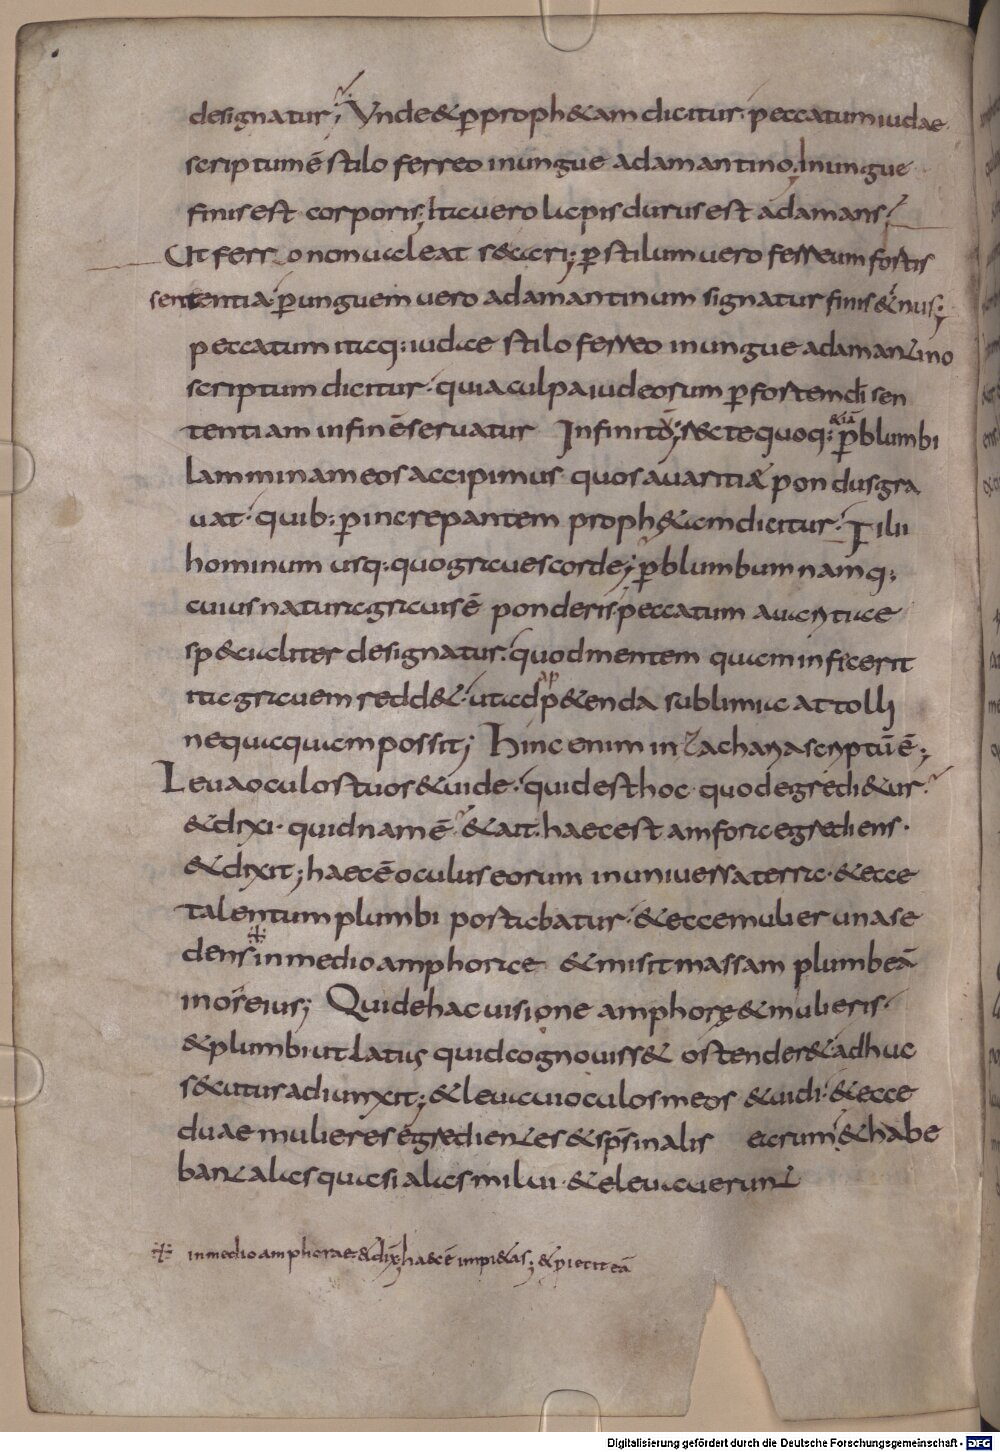 designatur; Vnde & ꝑ proph&am dicitur· peccatum iudae
scriptum ē stilo ferreo in ungue adamantino; In ungue
finis est corporis; Ita uero lapis durus est adamans;
Ut ferro non ualeat secari; ꝑ stilum uero ferreum fortis
sententia· ꝑ unguem uero adamantinum signatur finis &nus;
peccatum itaq: iudae stilo ferreo in ungue adamantino
scriptum dicitur· quia culpa iudeorum ꝑ fortem di sen
tentiam in finē seruatur Infinitō; Recte quoq: &iā ꝑ blumbi
lamminam eos accipimus quos auaritiæ pondus gra
uat· quib: ꝑ increpantem proph&am dicitur· Filii
hominum usq: quo graues corde; ꝑ blumbum namq:
cuius natura grauis ē ponderis· peccatum auaritiae
specialiter designatur· quod mentem quam infecerit
ita grauem redd&· ut ad ap&enda sublimia attolli
nequaquam possit; Hinc enim in Zacharia scriptū ē;
Leua oculos tuos & uide· quid est hoc quod egredi&ur·
& dixi· quidnam ē & ait· haec est amfora egrediens·
& dixit; haec ē oculus eorum in uniuersa terra· & ecce
talentum plumbi portabatur· & ecce mulier una se
dens in medio amphorae & misit massam plumbeā
in os eius; Qui de hac uisione amphorę & mulieris·
& plumbi ut latius quid cognouiss& ostender& adhuc
secutus adiunxit; & leuaui oculos meos & uidi· & ecce
duae mulieres egredientes & sp̄s in alis earum & habe
bant alas quasi alas milui & eleuauerunt
in medio amphorae· & dix̄; haec ē impi&as; & piecit eā
Digitalisierung gefördert durch die Deutsche Forschungsgemeinschaft - DFG